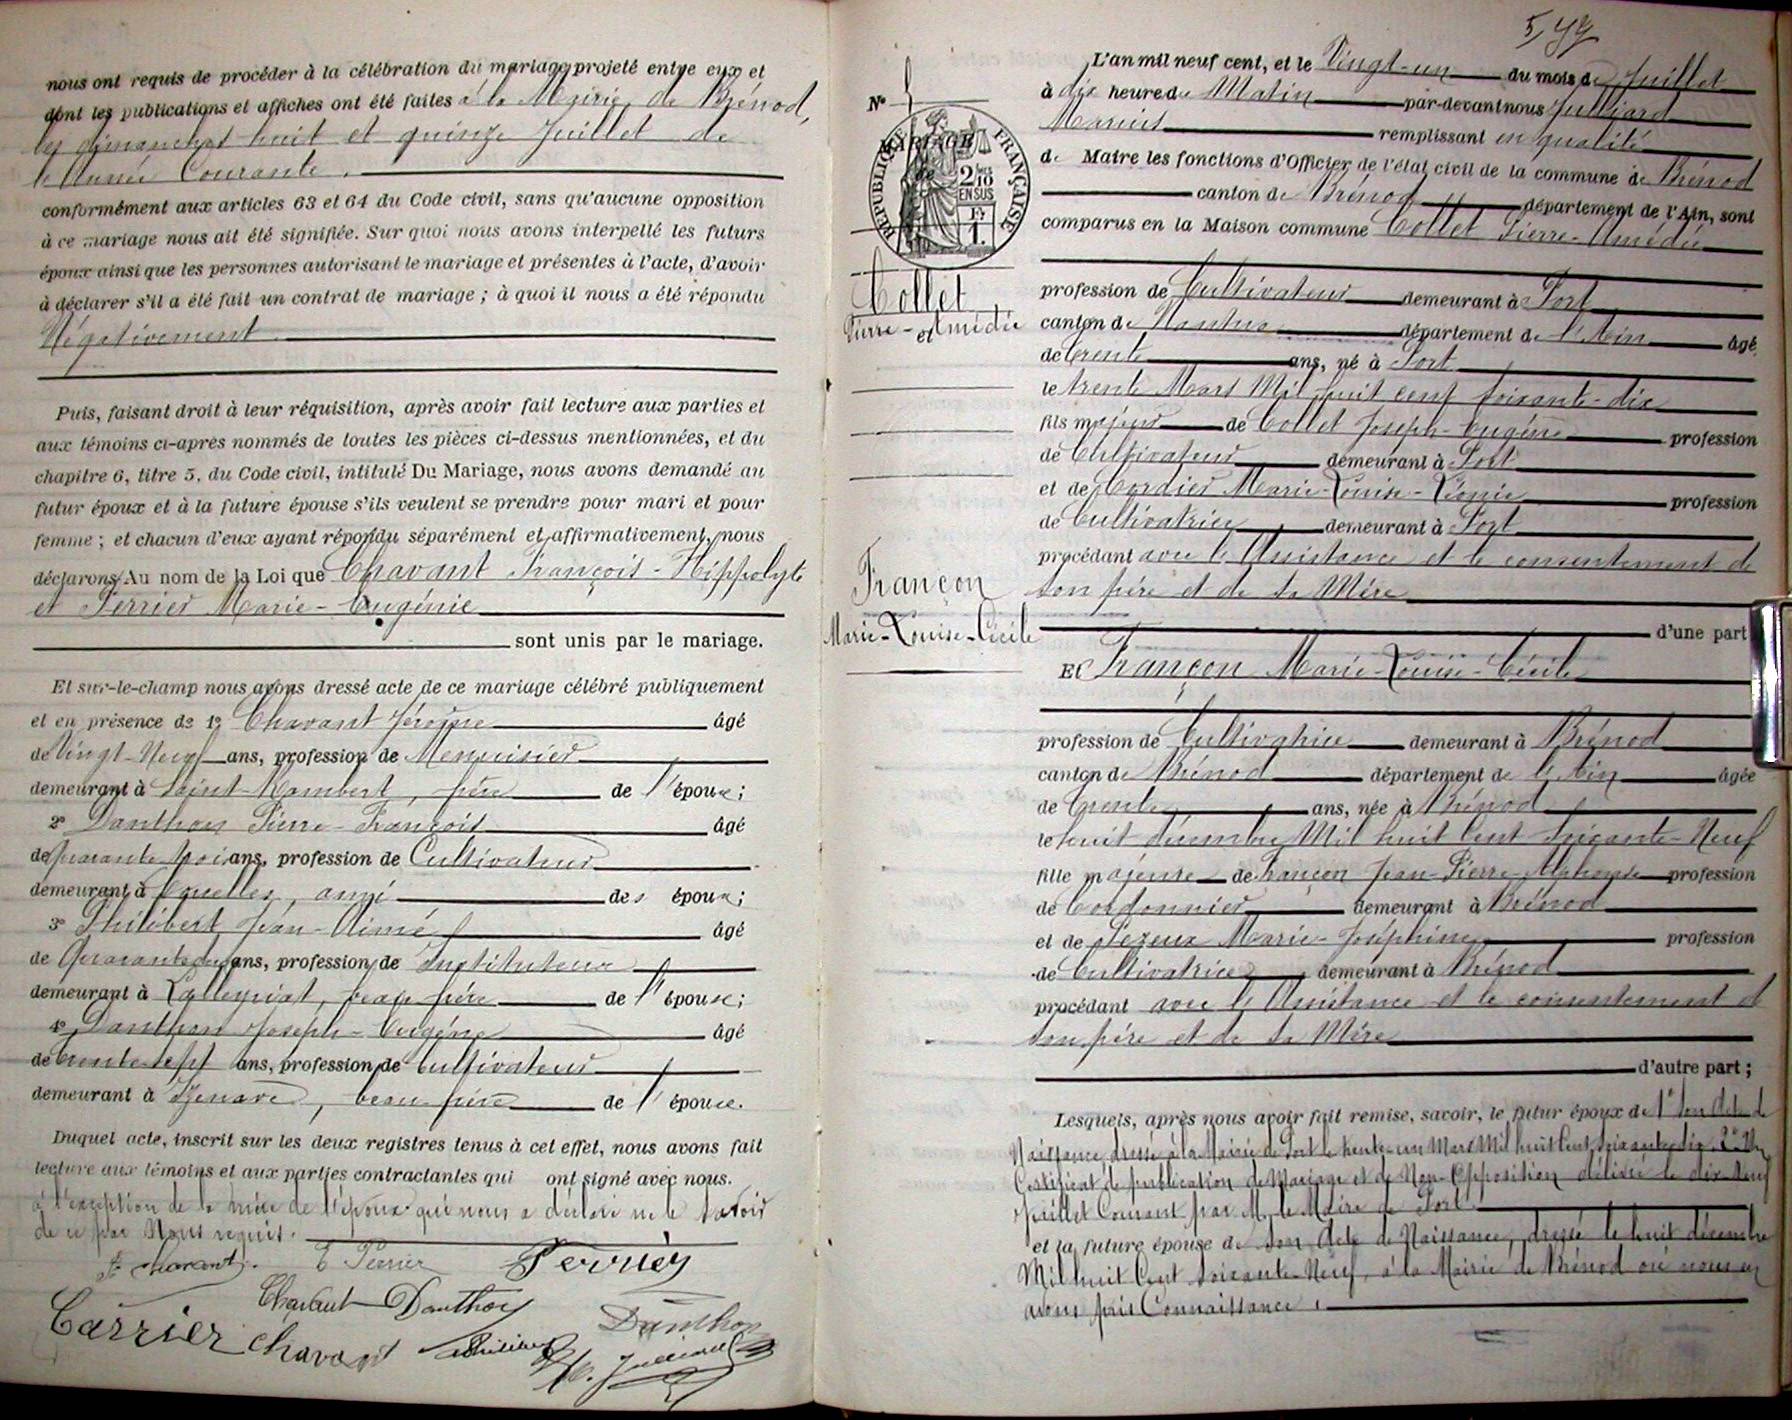 nous ont requis de procéder à la célébration du mariage projeté entre eux et
dont les publications et affiches ont été faites à la Mairie de Brénod,
les dimanches huit et quinze Juillet de
l'Année Courante.
conformément aux articles 63 et 64 du Code civil, sans qu'aucune opposition
à ce mariage nous ait été signifiée. Sur quoi nous avons interpellé les futurs
époux ainsi que les personnes autorisant le mariage et présentes à l'acte, d'avoir
à déclarer s'il a été fait un contrat de mariage ; à quoi il nous a été répondu
Négativement.
Puis, faisant droit à leur réquisition, après avoir fait lecture aux parties et
aux témoins ci-après nommés de toutes les pièces ci-dessus mentionnées, et du
chapitre 6, titre 5, du Code civil, intitulé Du Mariage, nous avons demandé au
futur époux et à la future épouse s'ils veulent se prendre pour mari et pour
femme ; et chacun d'eux ayant répondu séparément et affirmativement, nous
déclarons Au nom de la Loi que Chavant François-Hippolyte
et Perrier Marie-Eugénie
sont unis par le mariage.
Et sur-le-champ nous avons dressé acte de ce mariage célébré publiquement
et en présence de 1° Chavant Jérôme âgé
de Vingt-Neuf ans, profession de Menuisier
demeurant à Saint-Rambert, frère de l'époux ;
2° Danthon Pierre-François âgé
de quarante trois ans, profession de Cultivateur
demeurant à, ami des époux ;
3° Philibert Jean-Aimé âgé
de Quarante ans, profession de Instituteur
demeurant à Lalleyriat, beau frère de l'épouse ;
4° Danthon Joseph-Eugène âgé
de trente-sept ans, profession de Cultivateur
demeurant à Izenave, beau-frère de l'épouse.
Duquel acte, inscrit sur les deux registres tenus à cet effet, nous avons fait
lecture aux témoins et aux parties contractantes qui ont signé avec nous.
à l'exception de la mère de l'époux qui nous a déclaré ne le savoir
de ce par Nous requis.
Chavant. E Perrier Perrier
Chavant Danthon Danthon
Carrier Chavant Philibert M. Julliard
5,
L'an mil neuf cent, et le Vingt-un du mois de Juillet
à dix heure du Matin par-devant nous Julliard
Marius remplissant en qualité
de Maire les fonctions d'Officier de l'état civil de la commune de Brénod
canton de Brénod département de l'Ain, sont
comparus en la Maison commune Collet Pierre-Amédée
N°
MARIAGE
de
RÉPUBLIQUE FRANÇAISE
2/10 EN SUS
1.
Collet
Pierre-Amédée
et
Françon
Marie-Louise-Cécile
profession de Cultivateur demeurant à Port
canton de Nantua département de l'Ain âgé
de trente ans, né à Port
le trente Mars Mil huit cent soixante-dix
fils majeur de Collet Joseph-Eugène profession
de Cultivateur demeurant à Port
et de Cordier Marie-Louise-Léonie profession
de Cultivatrice demeurant à Port
procédant avec l'Assistance et le consentement de
son père et de sa Mère
d'une part
Et Françon Marie-Louise-Cécile
profession de Cultivatrice demeurant à Brénod
canton de Brénod département de l'Ain âgée
de trente ans, née à Brénod
le huit décembre Mil huit Cent soixante-Neuf
fille majeure de Françon Jean-Pierre-Alphonse profession
de Cordonnier demeurant à Brénod
et de Marie-Joséphine profession
de Cultivatrice demeurant à Brénod
procédant avec l'Assistance et le consentement de
son père et de sa Mère
d'autre part ;
Lesquels, après nous avoir fait remise, savoir, le futur époux de 1° son Acte de
Naissance, dressé à la Mairie de Port le trente-un Mars Mil huit Cent soixante-dix. 2° Un
Certificat de publication de Mariage et de Non-Opposition délivré le dix-neuf
Juillet Courant par M. le Maire de Port.
et la future épouse de son Acte de Naissance, dressé le huit décembre
Mil huit Cent soixante-Neuf, à la Mairie de Brénod où nous en
avons pris Connaissance.